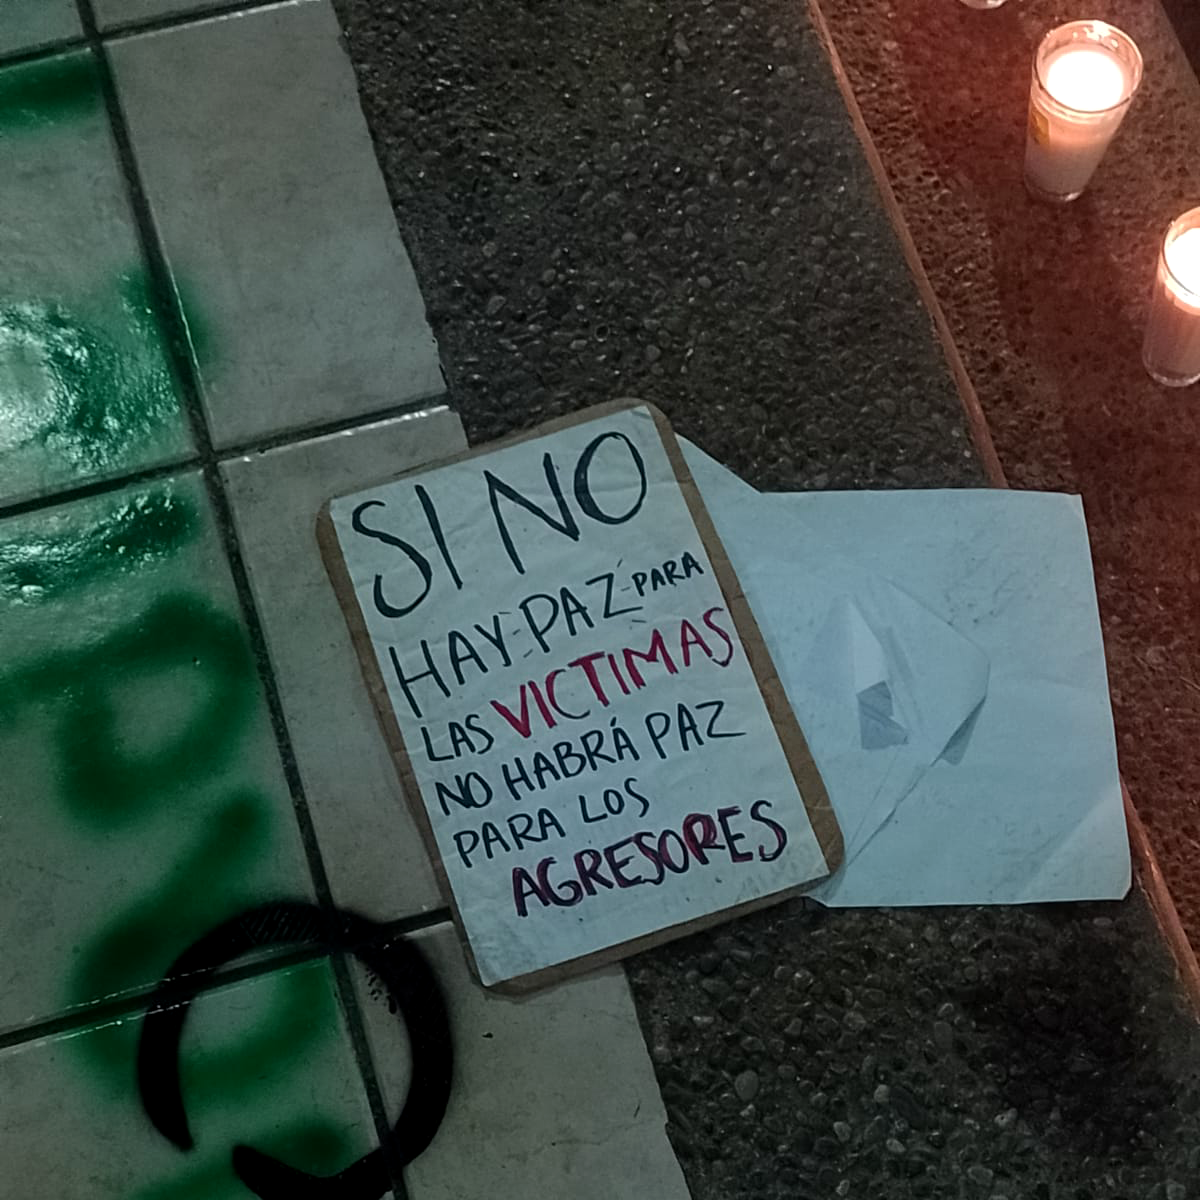 SI NO
HAY PAZ PARA
LAS VICTIMAS
NO HABRÁ PAZ
PARA LOS
AGRESORES